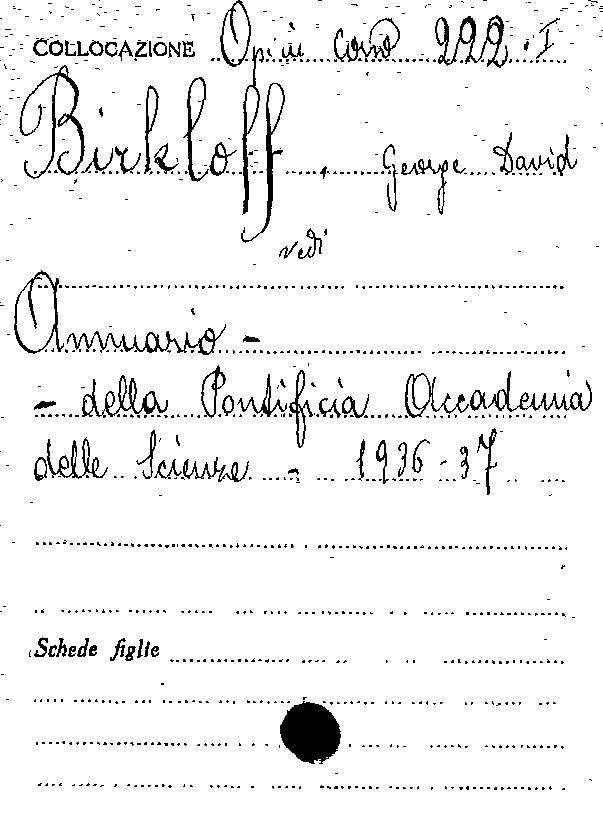 COLLOCAZIONE Op. in corso 222. I
Birkloff, George David
vedi
Annuario -
- della Pontificia Accademia
delle Scienze - 1936-37
Schede figlie